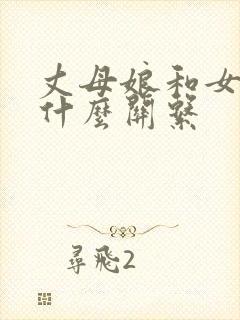 丈母娘和女
什麼關繫
尋飛2